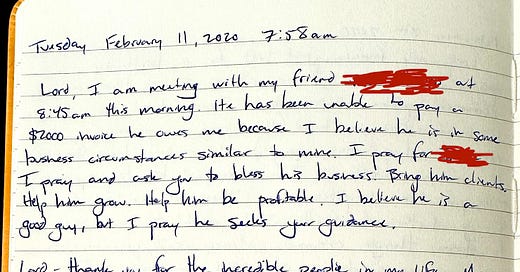 Tuesday February 11, 2020 7:58am
Lord, I am meeting with my friend at
8:45am this morning. He has been unable to pay a
$2000 invoice he owes me because I believe he is in some
business circumstances similar to mine. I pray for
I pray and ask you to bless his business. Bring him clients.
Help him grow. Help him be profitable. I believe he is a
good guy, but I pray he seeks your guidance.
Lord - thank you for the incredible people in my life.